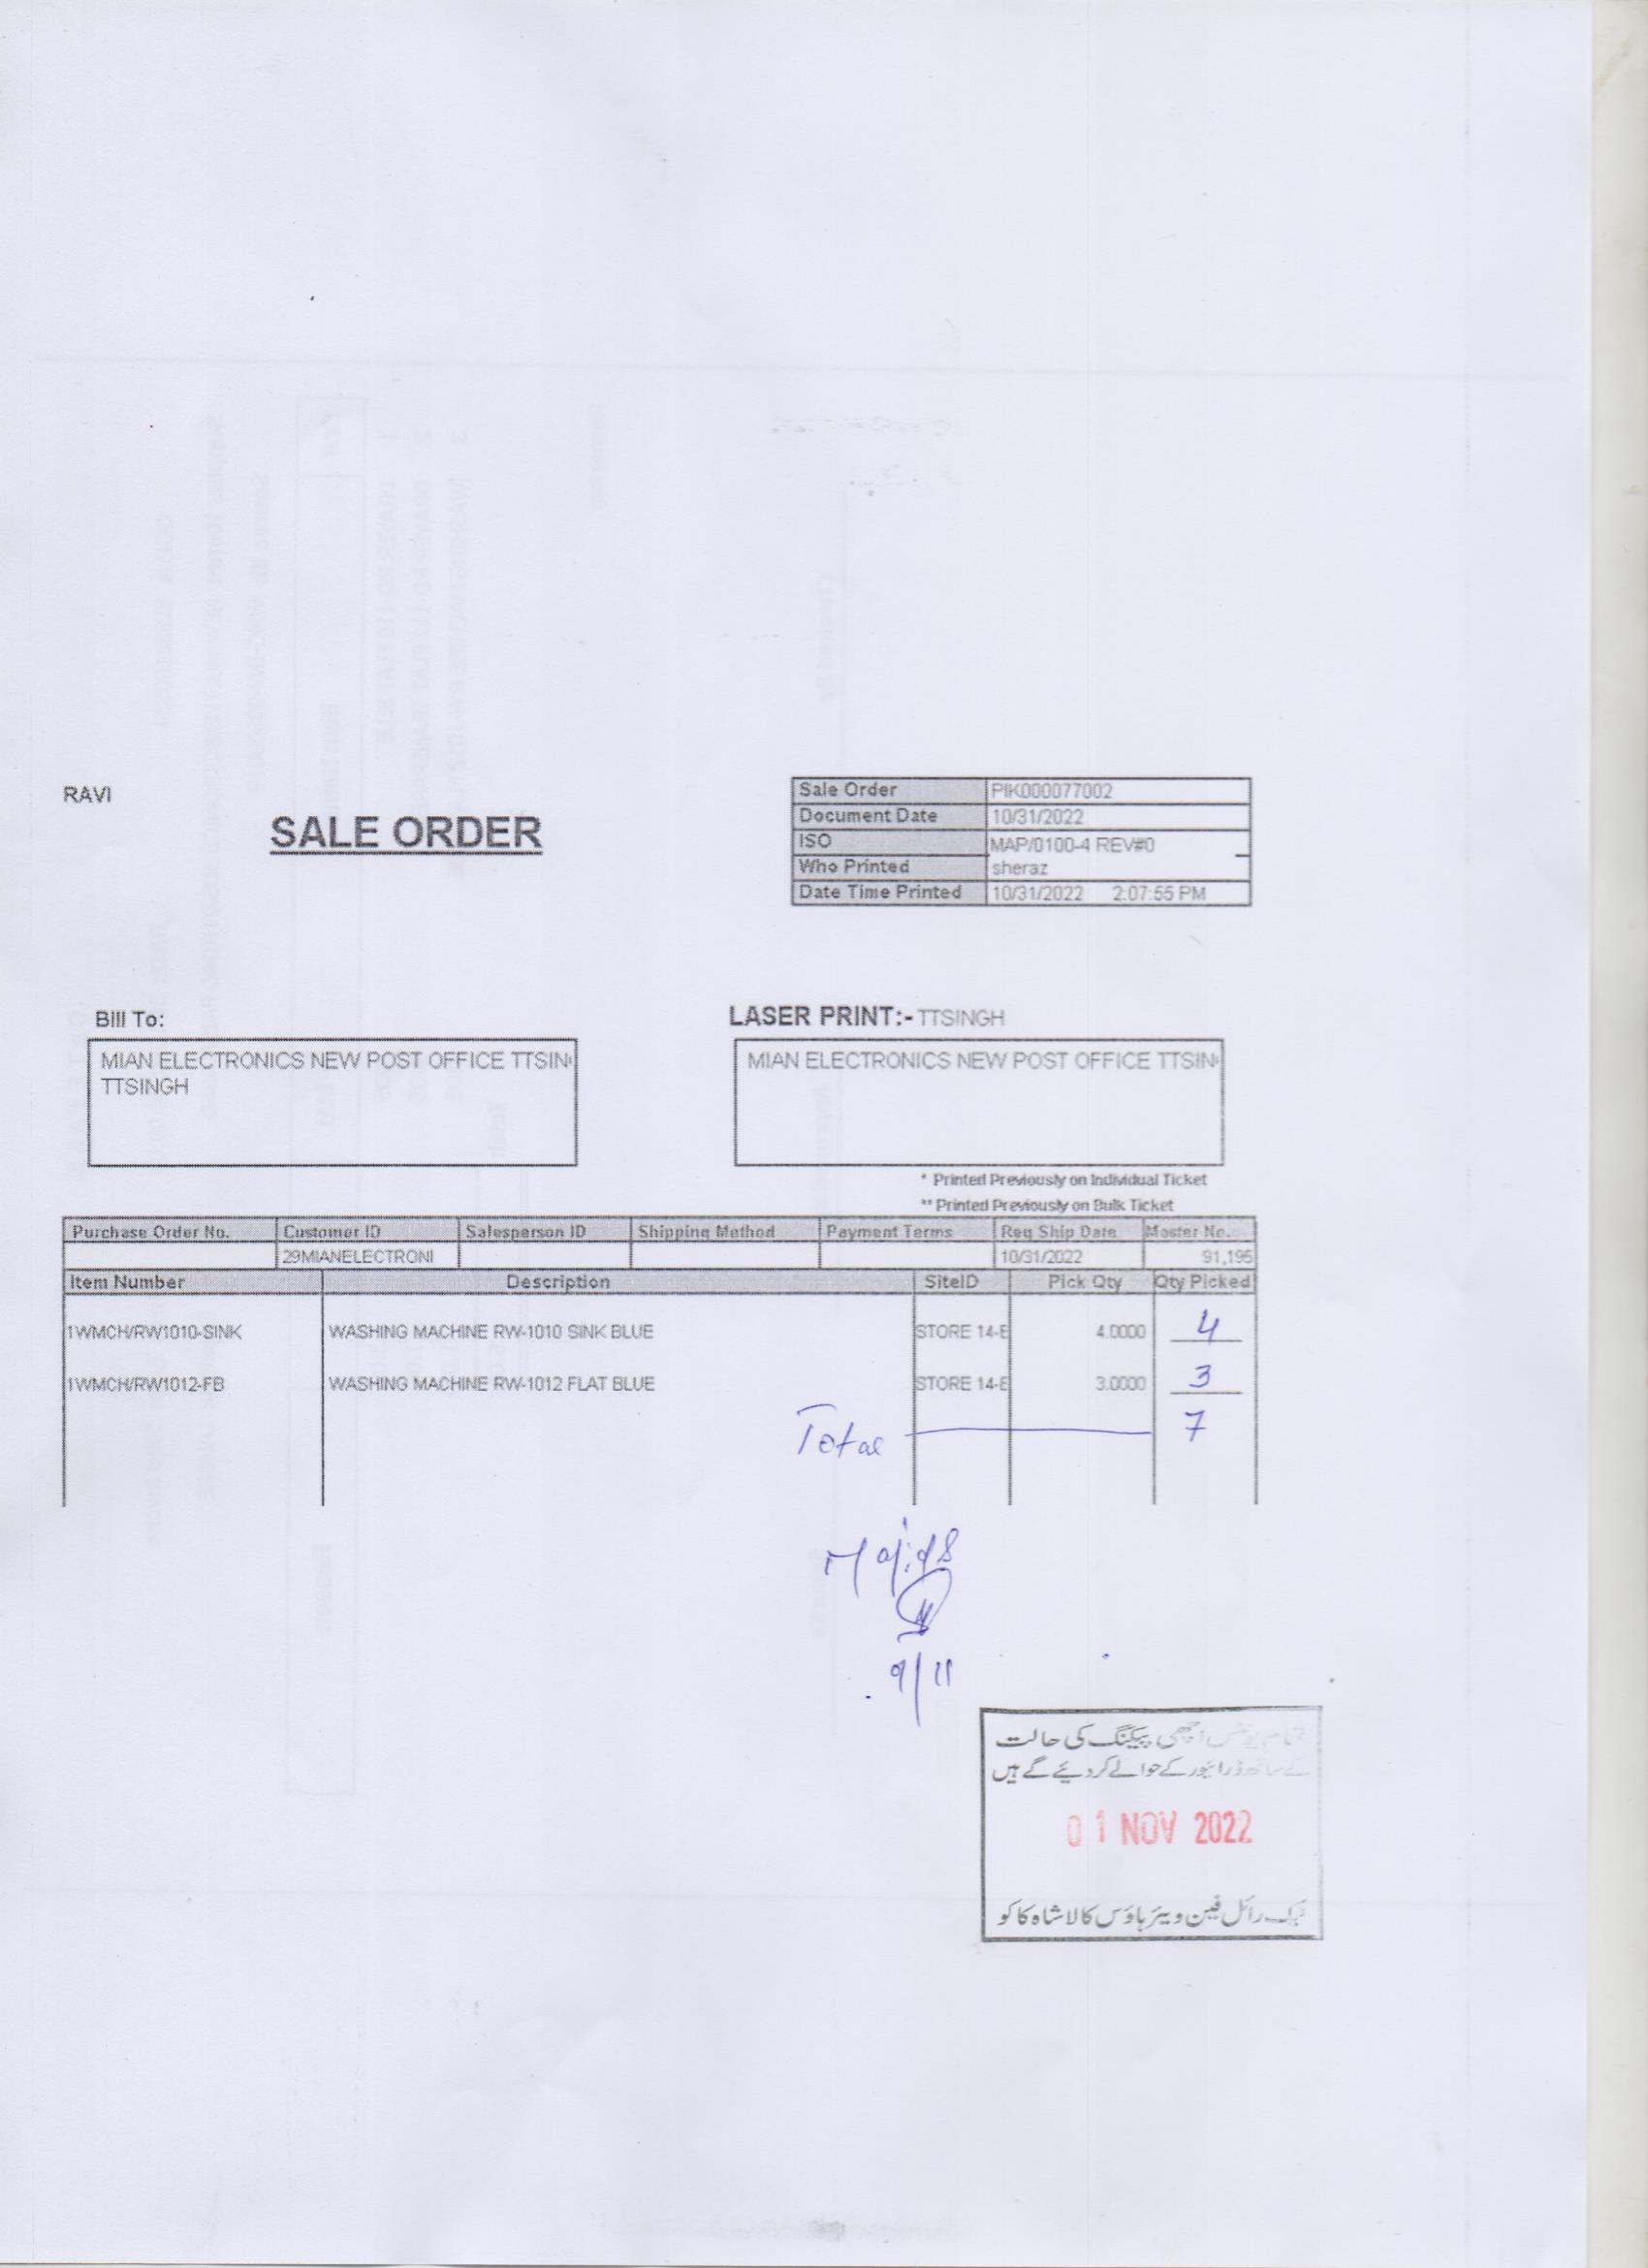 RAVI
SALE ORDER
Sale Order PIK000077002
Document Date 10/31/2022
ISO MAP/0100-4 REV#0
Who Printed sheraz
Date Time Printed 10/31/2022 2:07:55 PM
Bill To:
LASER PRINT:- TTSINGH
MIAN ELECTRONICS NEW POST OFFICE TTSIN
TTSINGH
MIAN ELECTRONICS NEW POST OFFICE TTSIN
* Printed Previously on Individual Ticket
** Printed Previously on Bulk Ticket
Purchase Order No. Customer ID Salesperson ID Shipping Method Payment Terms Req Ship Date Master No.
29MIANELECTRONI 10/31/2022 91,195
Item Number Description SiteID Pick Qty Qty Picked
1WMCH/RW1010-SINK WASHING MACHINE RW-1010 SINK BLUE STORE 14-E 4.0000 4
1WMCH/RW1012-FB WASHING MACHINE RW-1012 FLAT BLUE STORE 14-E 3.0000 3
Total 7
9/11
اچھی پیکنگ کی حالت
کے ساتھ ڈرائیور کے حوالے کر دیئے گے ہیں
01 NOV 2022
رائل فین ویئر ہاؤس کالا شاہ کاکو